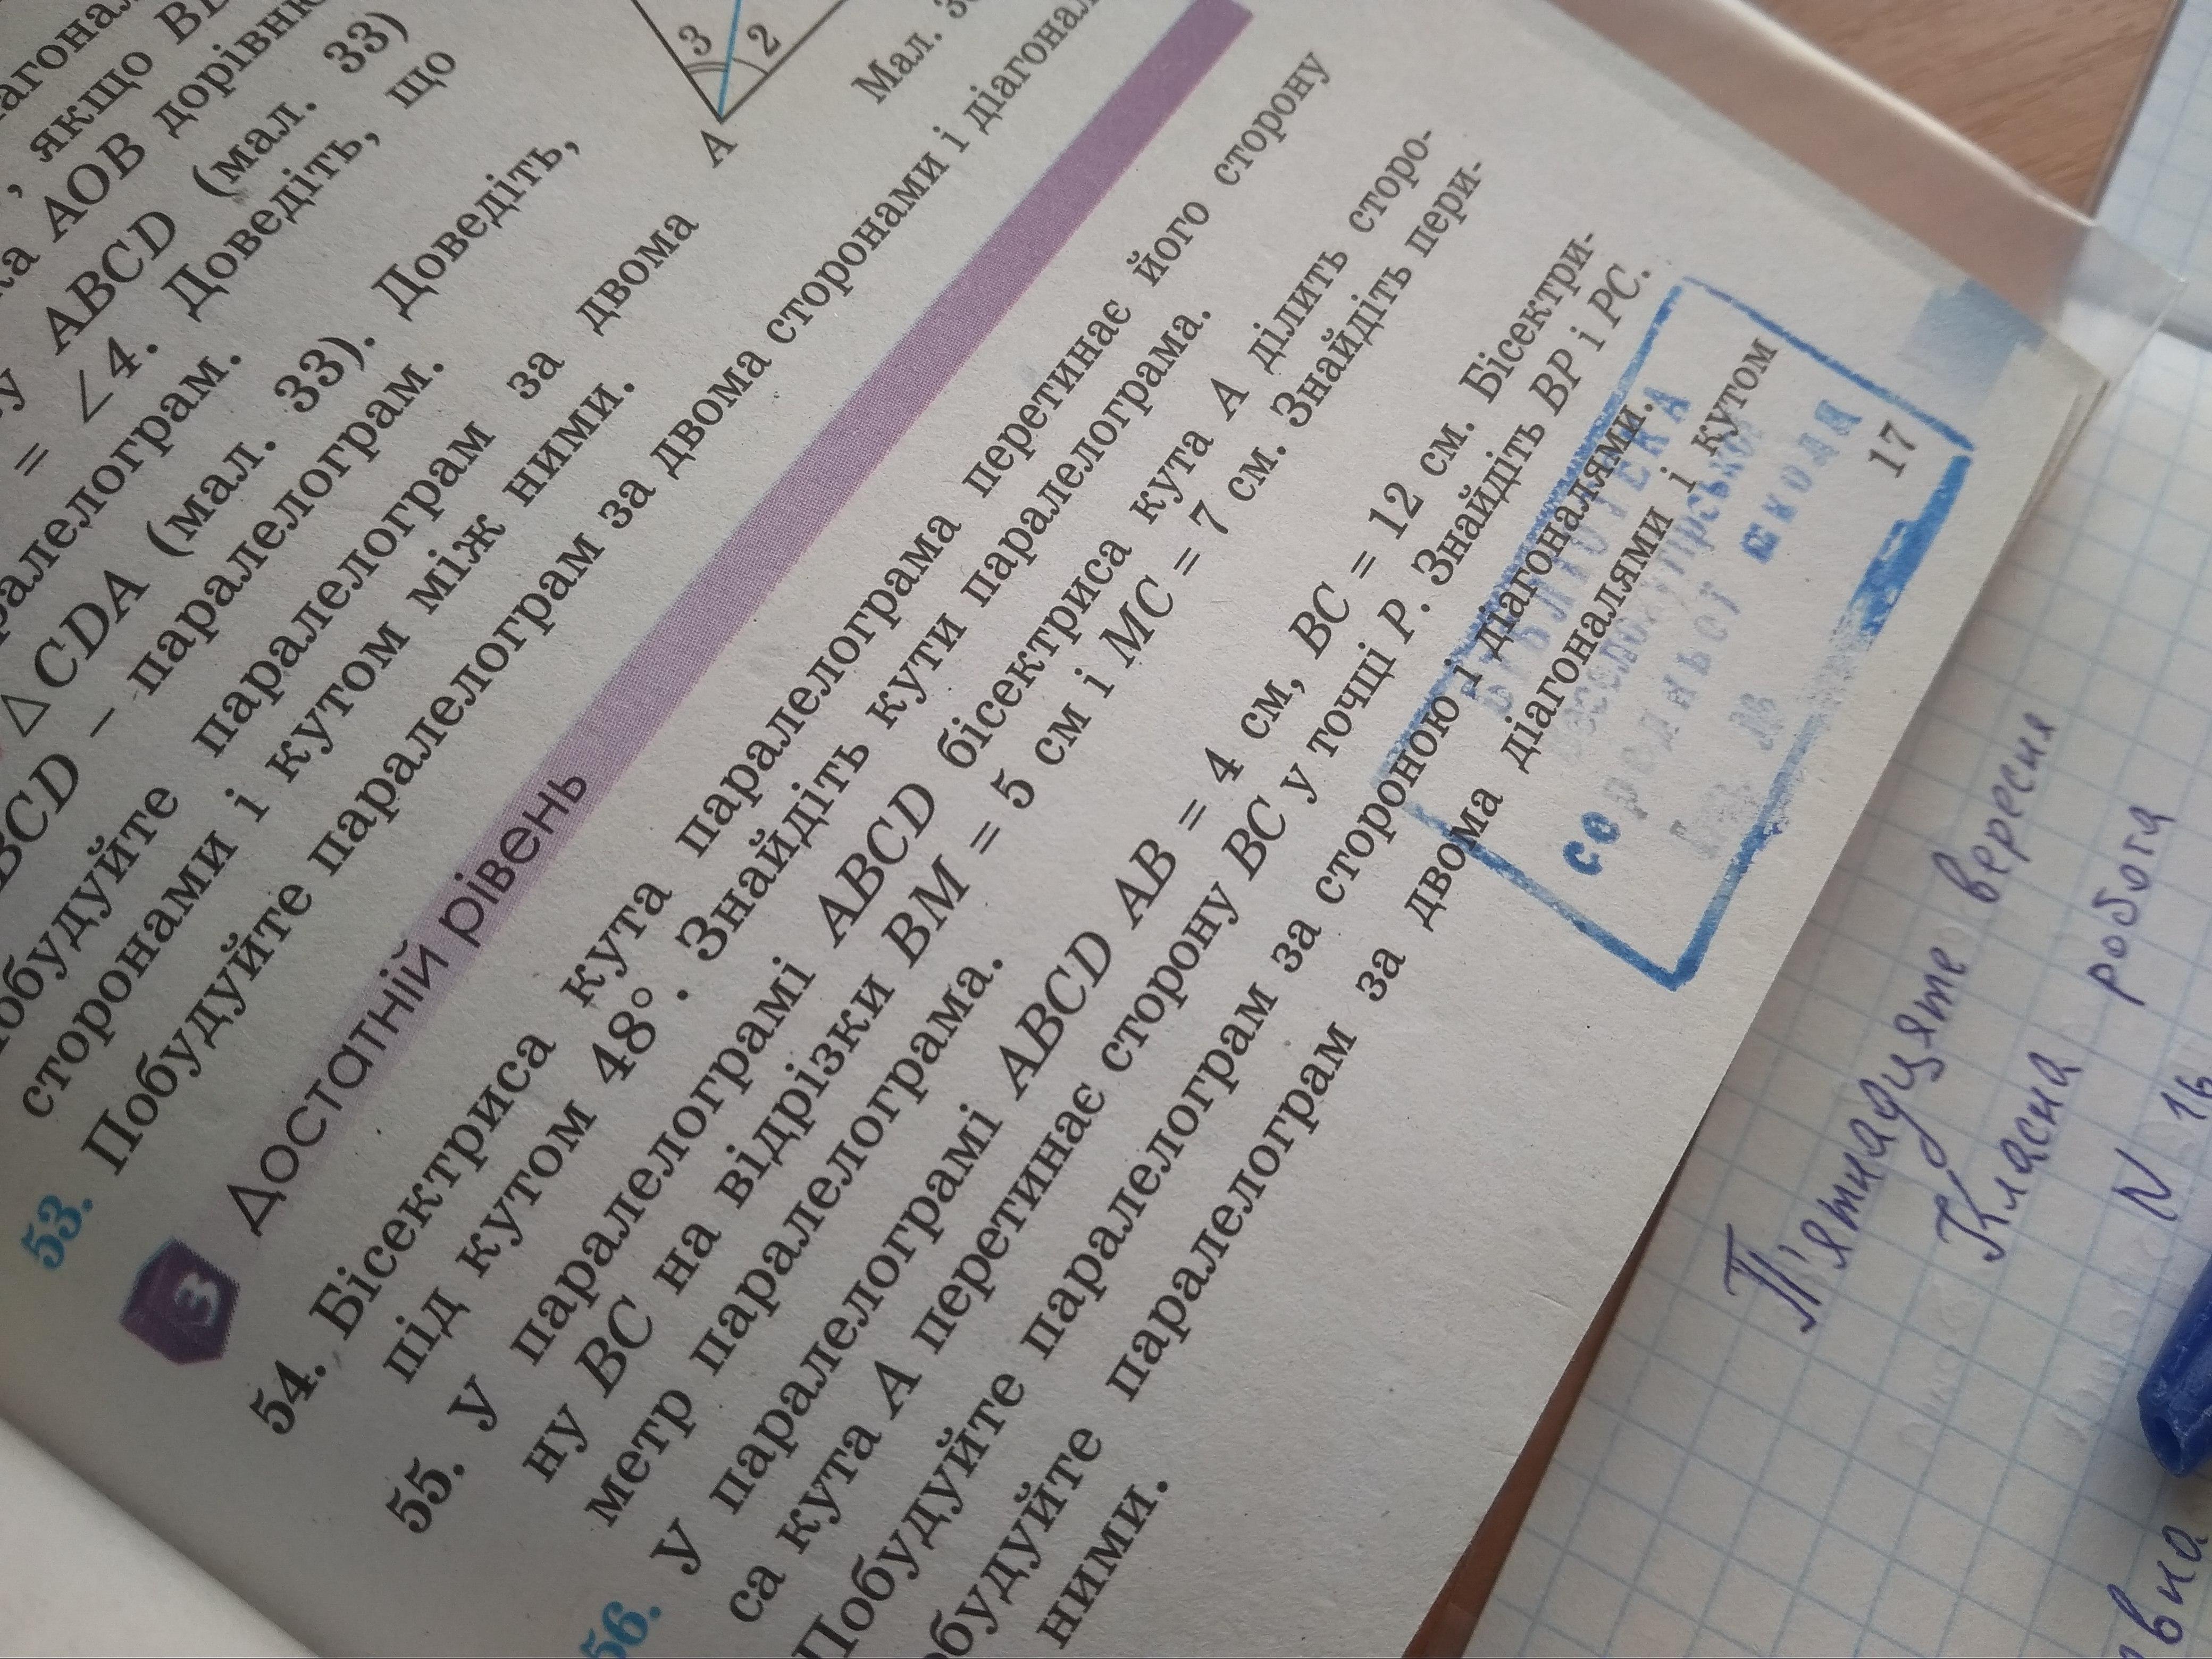 якщо
AOB дорівню
ABCD (мал. 33)
= ∠4. Доведіть, що
паралелограм.
△CDA (мал. 33). Доведіть,
ABCD – паралелограм.
Побудуйте паралелограм за двома
сторонами і кутом між ними.
53. Побудуйте паралелограм за двома сторонами і діагонал
3
2
A
Мал. 3
3 Достатній рівень
54. Бісектриса кута паралелограма перетинає його сторону
під кутом 48°. Знайдіть кути паралелограма.
55. У паралелограмі ABCD бісектриса кута A ділить сторо-
ну BC на відрізки BM = 5 см і MC = 7 см. Знайдіть пери-
метр паралелограма.
56. У паралелограмі ABCD AB = 4 см, BC = 12 см. Бісектри-
са кута A перетинає сторону BC у точці P. Знайдіть BP і PC.
Побудуйте паралелограм за стороною і діагоналями.
будуйте паралелограм за двома діагоналями і кутом
ними.
17
БІБЛІОТЕКА
середньої школи
П'ятнадцяте вересня
Класна робота
N 16